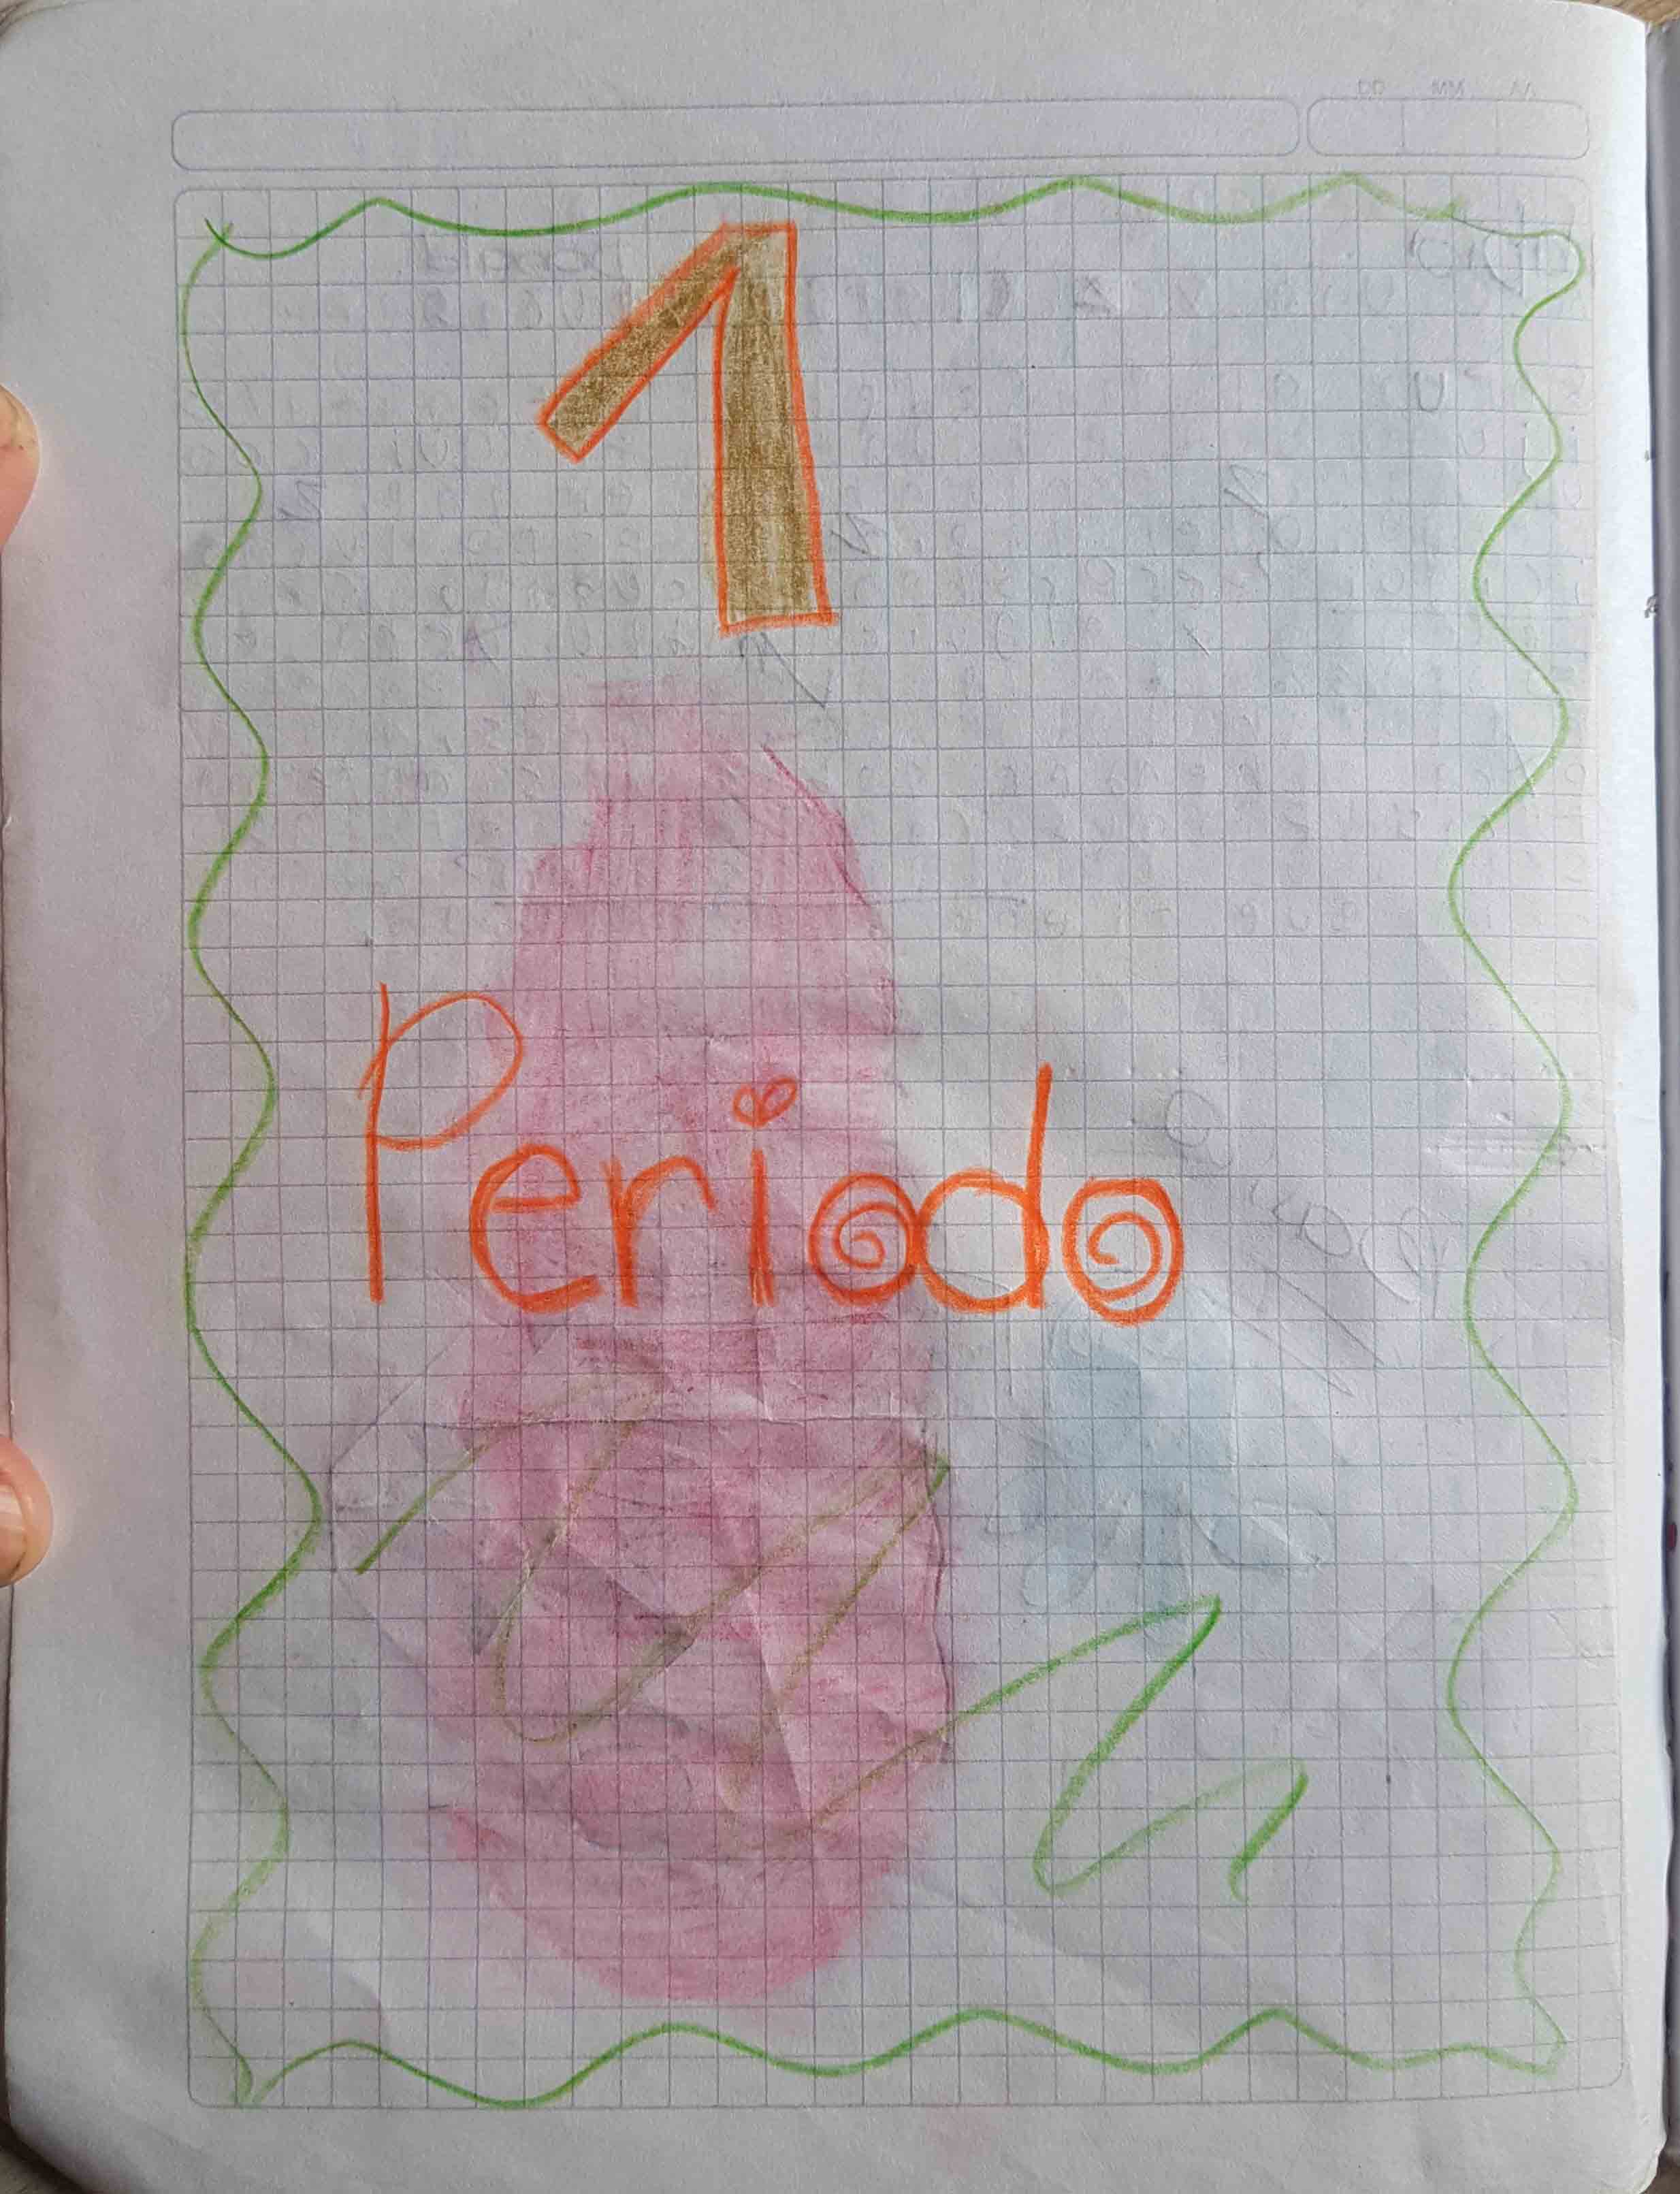 DD MM AA
1
Periodo